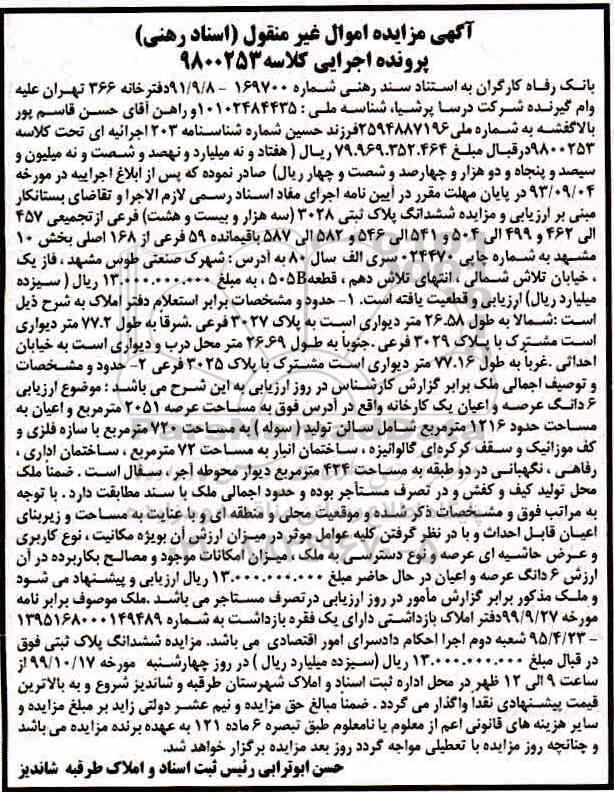 آگهی مزایده اموال غیر منقول (اسناد رهنی)
پرونده اجرایی کلاسه ۹۸۰۰۲۵۳
بانک رفاه کارگران به استناد سند رهنی شماره ۱۶۹۷۰۰ - ۹۱/۹/۸دفترخانه ۳۶۶ تهران علیه
وام گیرنده شرکت درسا پرشیا، شناسه ملی : ۱۰۱۰۲۴۸۴۴۳۵و راهن آقای حسن قاسم پور
بالاگفشه به شماره ملی۲۵۹۴۸۸۷۱۹۶فرزند حسین شماره شناسنامه ۲۰۳ اجرائیه ای تحت کلاسه
۹۸۰۰۲۵۳درقبال مبلغ ۷۹.۹۶۹.۳۵۲.۴۶۴ ریال ( هفتاد و نه میلیارد و نهصد و شصت و نه میلیون و
سیصد و پنجاه و دو هزار و چهارصد و شصت و چهار ریال) صادر نموده که پس از ابلاغ اجراییه در مورخه
۹۳/۰۹/۰۴ در پایان مهلت مقرر در آیین نامه اجرای مفاد اسناد رسمی لازم الاجرا و تقاضای بستانکار
مبنی بر ارزیابی و مزایده ششدانگ پلاک ثبتی ۳۰۲۸ (سه هزار و بیست و هشت) فرعی ازتجمیعی ۴۵۷
الی ۴۶۲ و ۴۹۹ الی ۵۰۴ و ۵۴۱ الی ۵۴۶ و ۵۸۲ الی ۵۸۷ باقیمانده ۵۹ فرعی از ۱۶۸ اصلی بخش ۱۰
مشهد به شماره چاپی ۰۲۴۴۷۰ سری الف سال ۸۰ به ادرس : شهرک صنعتی طوس مشهد ، فاز یک
، خیابان تلاش شمالی ، انتهای تلاش دهم ، قطعه۵۰۵B ، به مبلغ ۱۳.۰۰۰.۰۰۰.۰۰۰ ریال ( سیزده
میلیارد ریال) ارزیابی و قطعیت یافته است. ۱- حدود و مشخصات برابر استعلام دفتر املاک به شرح ذیل
است :شمالاً به طول ۲۶.۵۸ متر دیواری است به پلاک ۳۰۲۷ فرعی .شرقاً به طول ۷۷.۲ متر دیواری
است مشترک با پلاک ۳۰۲۹ فرعی .جنوباً به طول ۲۶.۶۹ متر محل درب و دیواری است به خیابان
احداثی .غرباً به طول ۷۷.۱۶ متر دیواری است مشترک با پلاک ۳۰۲۵ فرعی ۲- حدود و مشخصات
و توصیف اجمالی ملک برابر گزارش کارشناس در روز ارزیابی به این شرح می باشد : موضوع ارزیابی
۶ دانگ عرصه و اعیان یک کارخانه واقع در آدرس فوق به مساحت عرصه ۲۰۵۱ مترمربع و اعیان به
مساحت حدود ۱۲۱۶ مترمربع شامل سالن تولید ( سوله ) به مساحت ۷۲۰ مترمربع با سازه فلزی و
کف موزائیک و سقف کرکره‌ای گالوانیزه ، ساختمان انبار به مساحت ۷۲ مترمربع ، ساختمان اداری ،
رفاهی ، نگهبانی در دو طبقه به مساحت ۴۲۴ مترمربع دیوار محوطه آجر ، سفال است . ضمناً ملک
محل تولید کیف و کفش و در تصرف مستأجر بوده و حدود اجمالی ملک با سند مطابقت دارد . با توجه
به مراتب فوق و مشخصات ذکر شده و موقعیت محلی و منطقه ای و با عنایت به مساحت و زیربنای
اعیان قابل احداث و با در نظر گرفتن کلیه عوامل موثر در میزان ارزش آن بویژه مکانیت ، نوع کاربری
و عرض حاشیه ای عرصه و نوع دسترسی به ملک ، میزان امکانات موجود و مصالح بکاربرده در آن
ارزش ۶ دانگ عرصه و اعیان در حال حاضر مبلغ ۱۳.۰۰۰.۰۰۰.۰۰۰ ریال ارزیابی و پیشنهاد می شود
و ملک مذکور برابر گزارش مأمور در روز ارزیابی درتصرف مستاجر می باشد .ملک موصوف برابر نامه
مورخه ۹۹/۹/۲۷دفتر املاک بازداشتی دارای یک فقره بازداشت به شماره ۱۳۹۵۱۶۸۰۰۰۱۴۹۴۸۹
- ۹۵/۴/۲۳ شعبه دوم اجرا احکام دادسرای امور اقتصادی می باشد. مزایده ششدانگ پلاک ثبتی فوق
در قبال مبلغ ۱۳.۰۰۰.۰۰۰.۰۰۰ ریال (سیزده میلیارد ریال ) در روز چهارشنبه مورخه ۹۹/۱۰/۱۷ از
ساعت ۹ الی ۱۲ ظهر در محل اداره ثبت اسناد و املاک شهرستان طرقبه و شاندیز شروع و به بالاترین
قیمت پیشنهادی نقداً واگذار می گردد . ضمناً مبالغ حق مزایده و نیم عشر دولتی زاید بر مبلغ مزایده و
سایر هزینه های قانونی اعم از معلوم یا نامعلوم طبق تبصره ۶ ماده ۱۲۱ به عهده برنده مزایده می باشد
و چنانچه روز مزایده با تعطیلی مواجه گردد روز بعد مزایده برگزار خواهد شد.
حسن ابوترابی رئیس ثبت اسناد و املاک طرقبه شاندیز